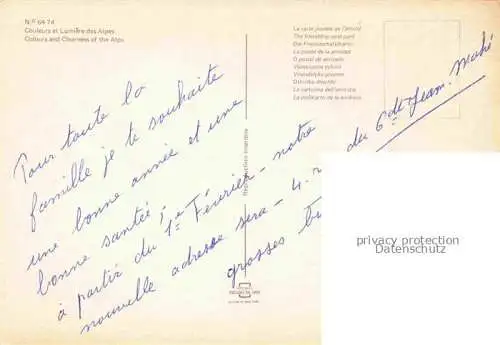 N° 64 74
Couleurs et Lumière des Alpes
Colours and Clearness of the Alps
La carte postale de l'amitié
The friendship post card
La postal de la amistad
O postal de amizade
La cartolina dell'amicizia
Reproduction interdite
Pour toute la
famille je te souhaite
une bonne année et une
bonne santé;
à partir du 1er Février - notre
nouvelle adresse sera - 4.
du 6 Jean. Mahé
grosses
privacy protection
Datenschutz